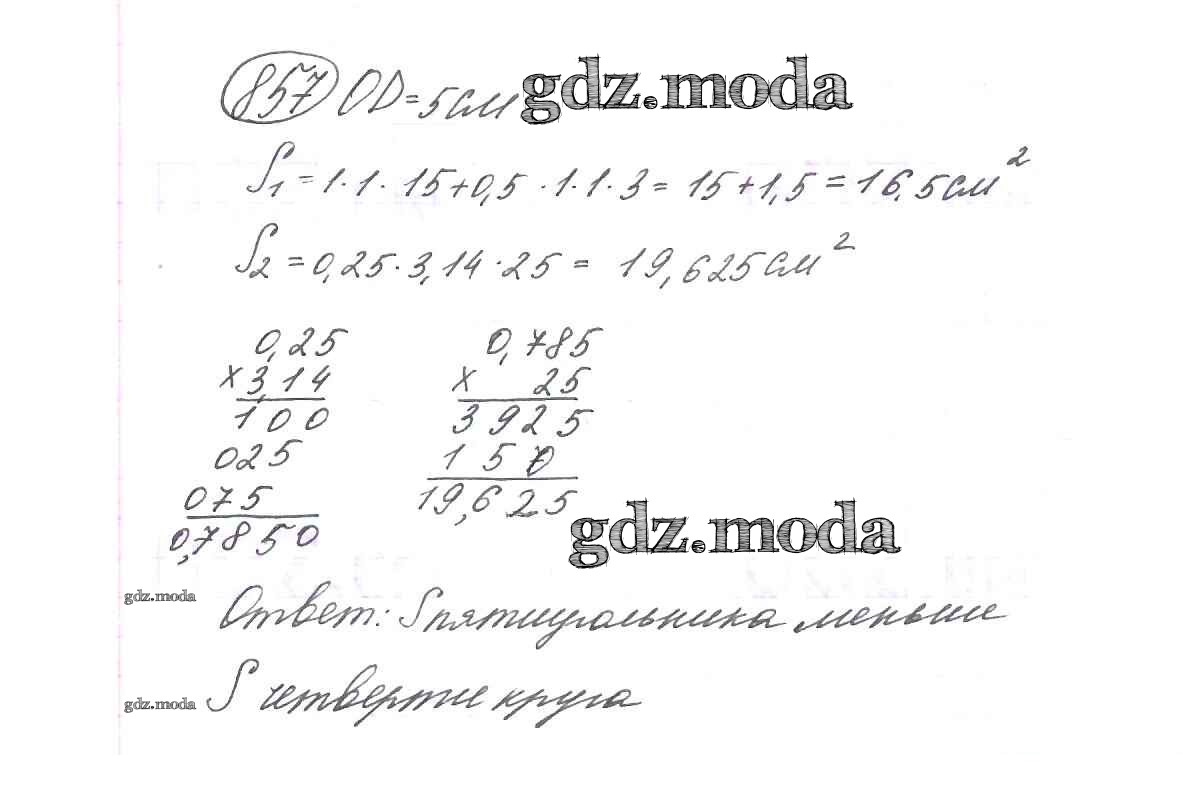 857 OD=5см gdz.moda
S1=1·1·15+0,5·1·1·3=15+1,5=16,5см²
S2=0,25·3,14·25= 19,625см²
0,25 0,785
×3,14 × 25
100 3925
025 150
075 19,625
0,7850 gdz.moda
gdz.moda Ответ: S пятиугольника меньше
gdz.moda S четверти круга